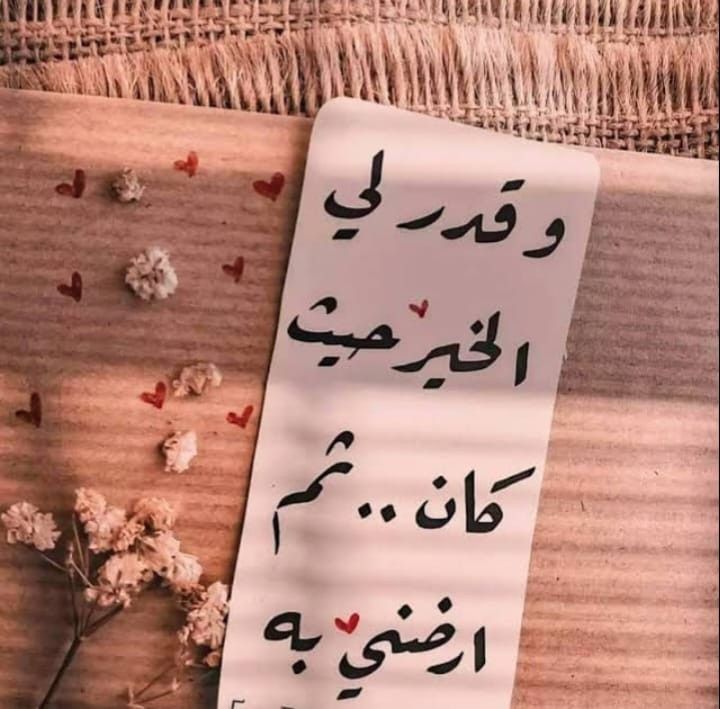 و قدر لي
الخير حيث
كان .. ثم
ارضني به